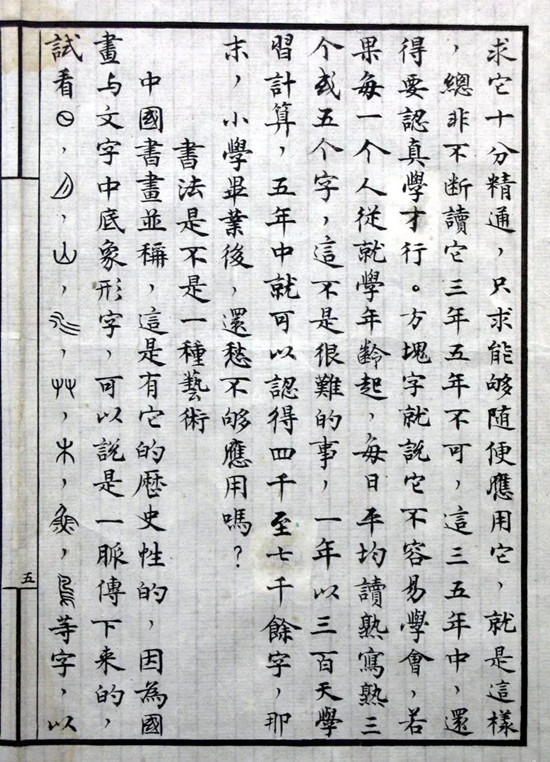 求它十分精通，只求能够随便應用它，就是這樣
，總非不断讀它三年五年不可，這三五年中，還
得要認真學才行。方塊字就說它不容易學會，若
果每一个人從就學年齡起，每日平均讀熟寫熟三
个或五个字，這不是很難的事，一年以三百天學
習計算，五年中就可以認得四千至七千餘字，那
末，小學畢業後，還愁不够應用嗎？
書法是不是一種藝術
中國書畫並稱，這是有它的歷史性的，因為國
畫与文字中底象形字，可以說是一脈傳下来的，
試看日，月，山，水，艸，木，魚，鳥等字，以
五